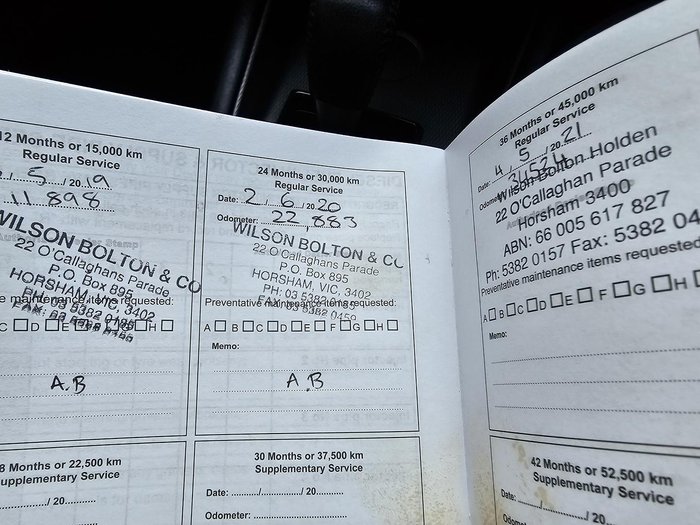 12 Months or 15,000 km
Regular Service
5 / 2019
11 898
WILSON BOLTON & CO
22 O'Callaghans Parade
P.O. Box 895
HORSHAM, VIC, 3402
maintenance items requested:
PH: 03 5382 0185
C D E H
A.B
8 Months or 22,500 km
Supplementary Service
/ 20
24 Months or 30,000 km
Regular Service
Date: 2 / 6 / 2020
Odometer: 22,883
WILSON BOLTON & CO
22 O'Callaghans Parade
P.O. Box 895
HORSHAM, VIC, 3402
PH: 03 5382 0185
Preventative maintenance items requested:
FAX: 03 5382 0459
A B C D E F G H
Memo:
A.B
30 Months or 37,500 km
Supplementary Service
Date: / / 20
Odometer:
36 Months or 45,000 km
Regular Service
Date: 4 / 5 / 2021
Wilson Bolton Holden
22 O'Callaghan Parade
Horsham 3400
ABN: 66 005 617 827
Ph: 5382 0157 Fax: 5382 04
Preventative maintenance items requested
A B C D E F G H
Memo:
42 Months or 52,500 km
Supplementary Service
Date: / / 20
Odometer: